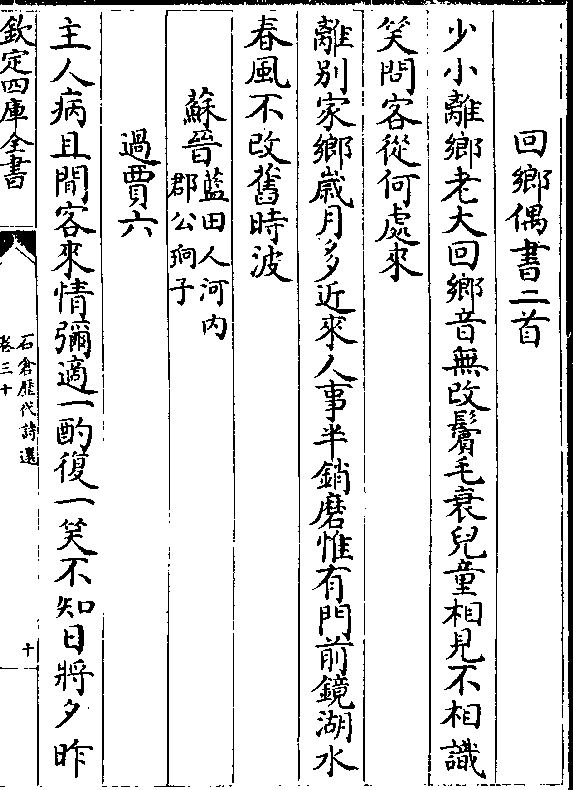 回鄉偶書二首
少小離鄉老大回鄉音無改鬢毛衰兒童相見不相識
笑問客從何處來
離別家鄉歲月多近來人事半銷磨惟有門前鏡湖水
春風不改舊時波
蘇晉藍田人河内
郡公珦子
過賈六
主人病且閒客來情彌適一酌復一笑不知日將夕昨
欽定四庫全書
石倉歷代詩選
卷三十
十